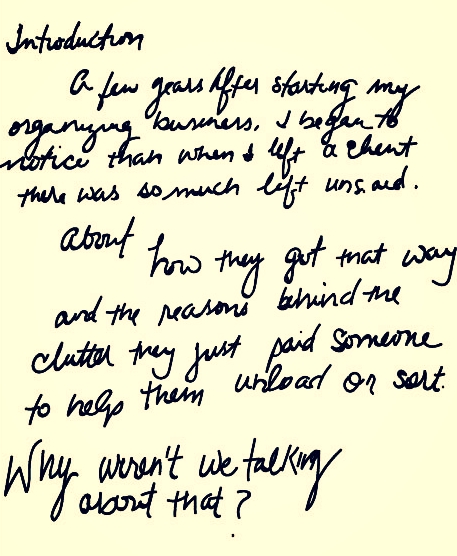 Introduction
A few years After starting my
organizing business, I began to
notice than when I left a client
there was so much left unsaid.
About how they got that way
and the reasons behind the
clutter they just paid someone
to help them unload or sort.
Why weren't we talking
about that?